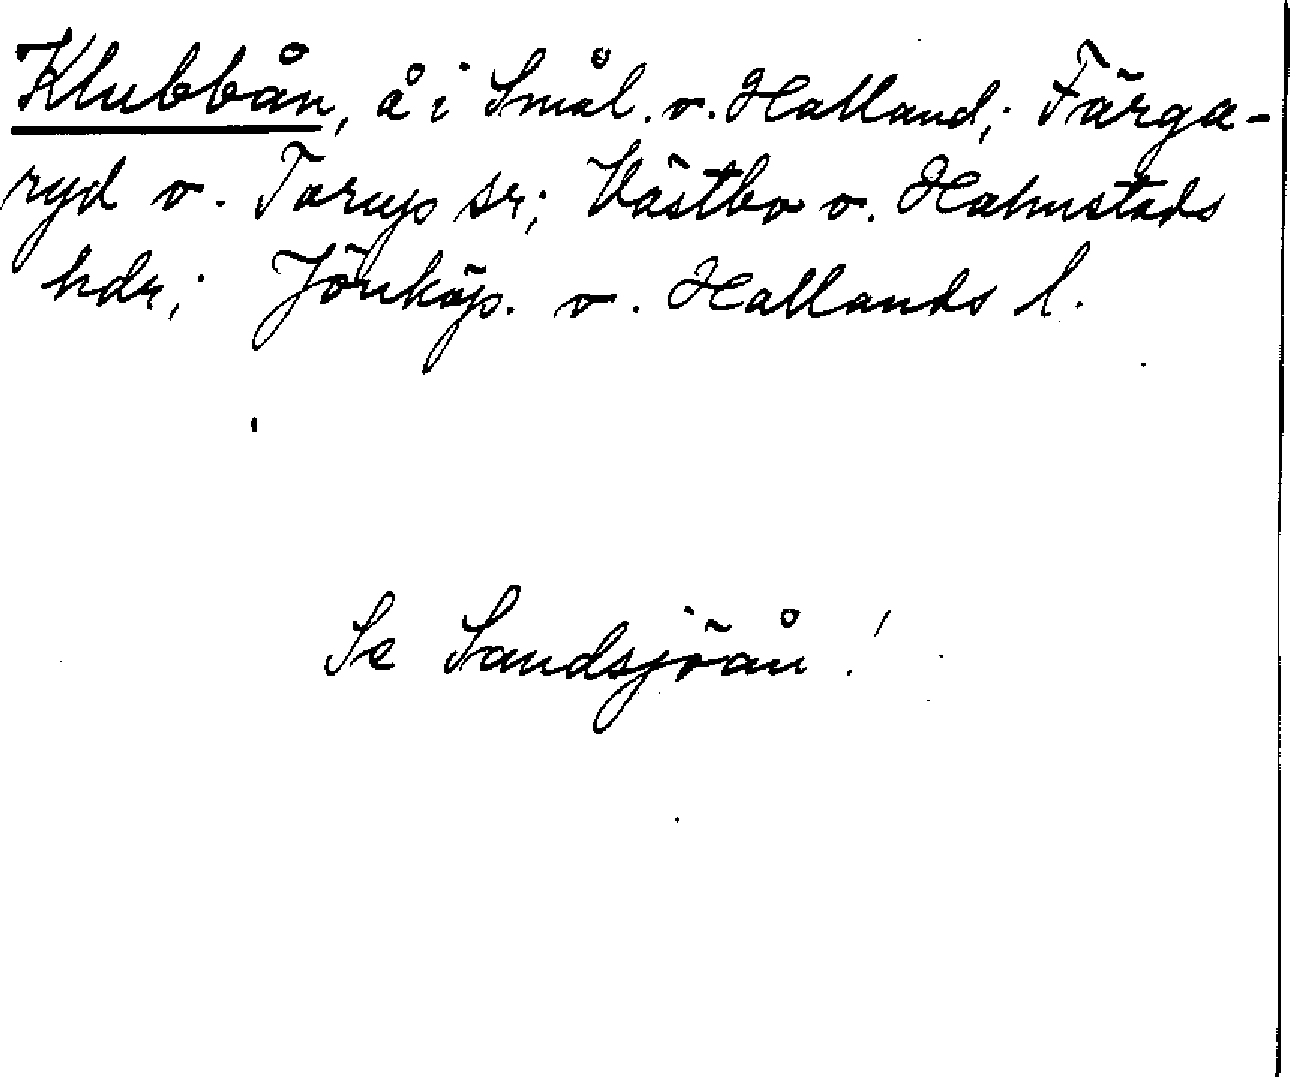 Klubbån, å i Smål. o. Halland; Färga-
ryd o. Torups sr; Västbo o. Halmstads
hdr; Jönköp. o. Hallands l.
Se Sandsjöån!